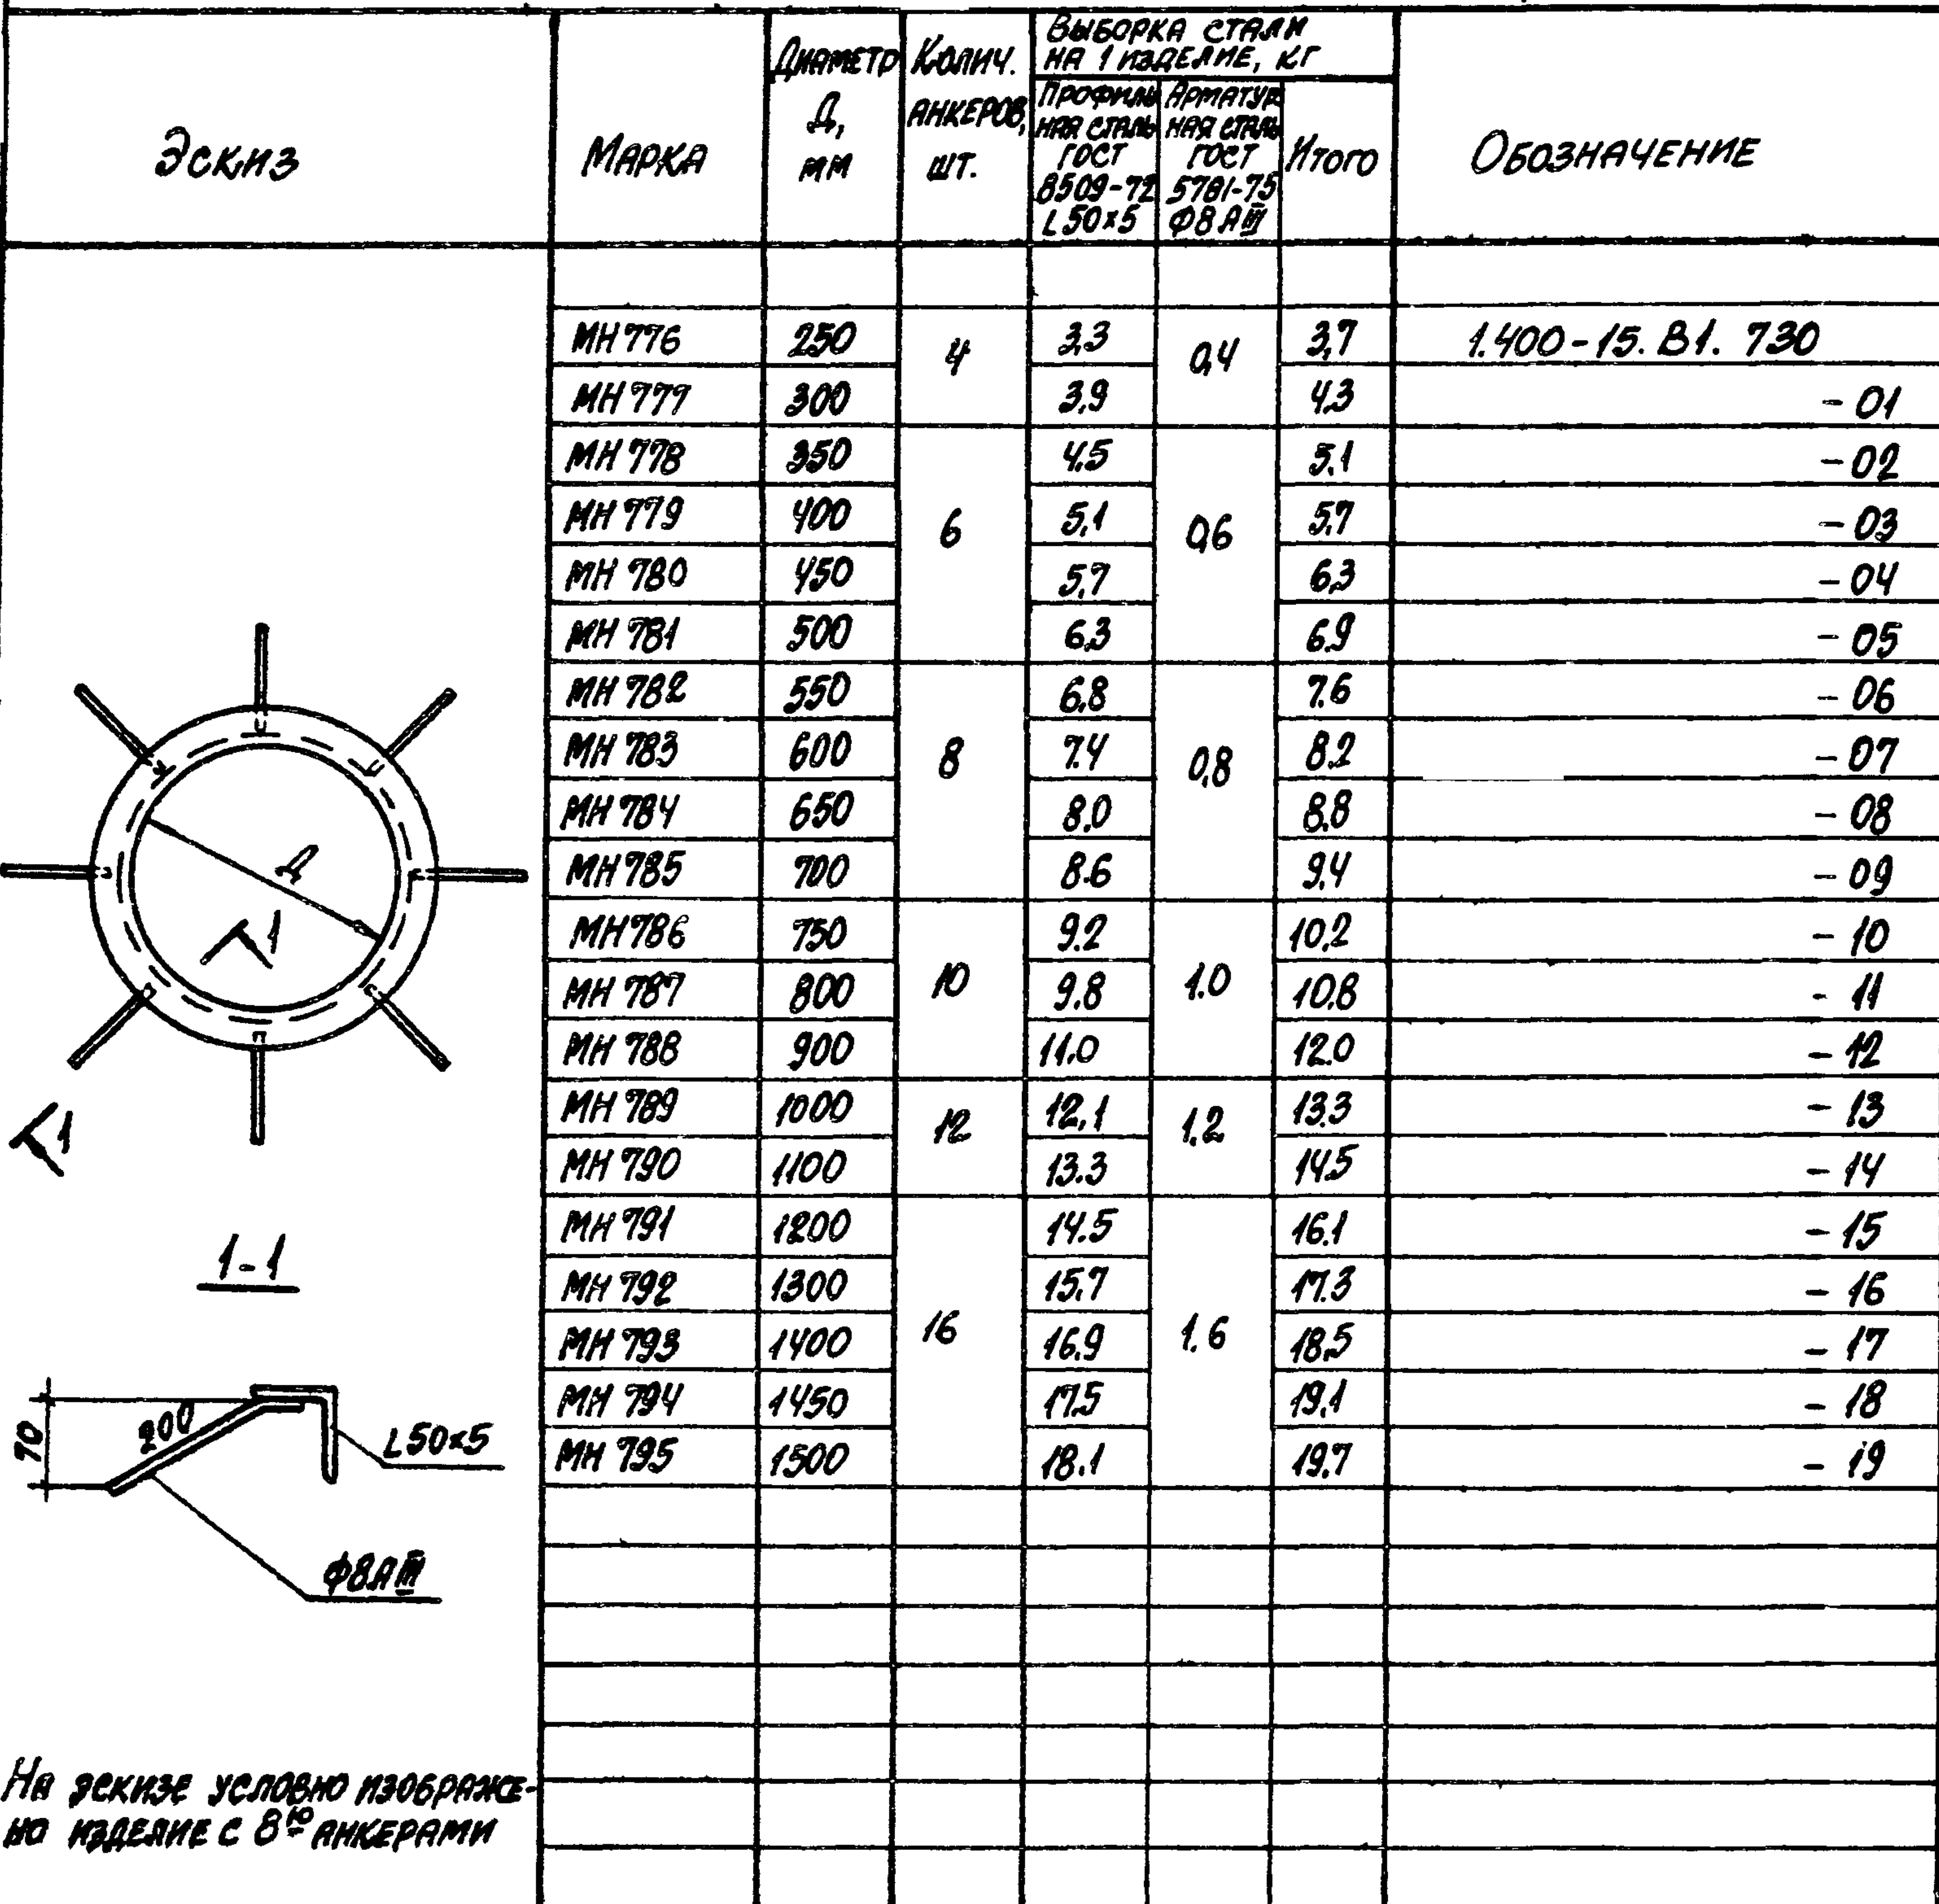 Эскиз
Марка
Диаметр
Д,
мм
Колич.
анкеров,
шт.
Выборка стали
на 1 изделие, кг
Профиль
ная сталь
ГОСТ
8509-72
L50×5
Арматур
ная сталь
ГОСТ
5781-75
Ф8АIII
Итого
Обозначение
МН 776 250 4 3,3 0,4 3,7 1.400-15.В1.730
МН 777 300 3,9 4,3 -01
МН 778 350 6 4,5 0,6 5,1 -02
МН 779 400 5,1 5,7 -03
МН 780 450 5,7 6,3 -04
МН 781 500 6,3 6,9 -05
МН 782 550 8 6,8 0,8 7.6 -06
МН 783 600 7,4 8,2 -07
МН 784 650 8,0 8,8 -08
МН 785 700 8.6 9,4 -09
МН 786 750 10 9.2 1.0 10,2 -10
МН 787 800 9.8 10,8 -11
МН 788 900 11.0 12.0 -12
МН 789 1000 12 12,1 1.2 13.3 -13
МН 790 1100 13.3 14.5 -14
МН 791 1200 16 14.5 1.6 16.1 -15
МН 792 1300 15.7 17.3 -16
МН 793 1400 16.9 18.5 -17
МН 794 1450 17.5 19.1 -18
МН 795 1500 18.1 19.7 -19
Д
1
1
1-1
70
200
L50×5
Ф8АIII
На эскизе условно изображе-
но изделие с 8ю анкерами